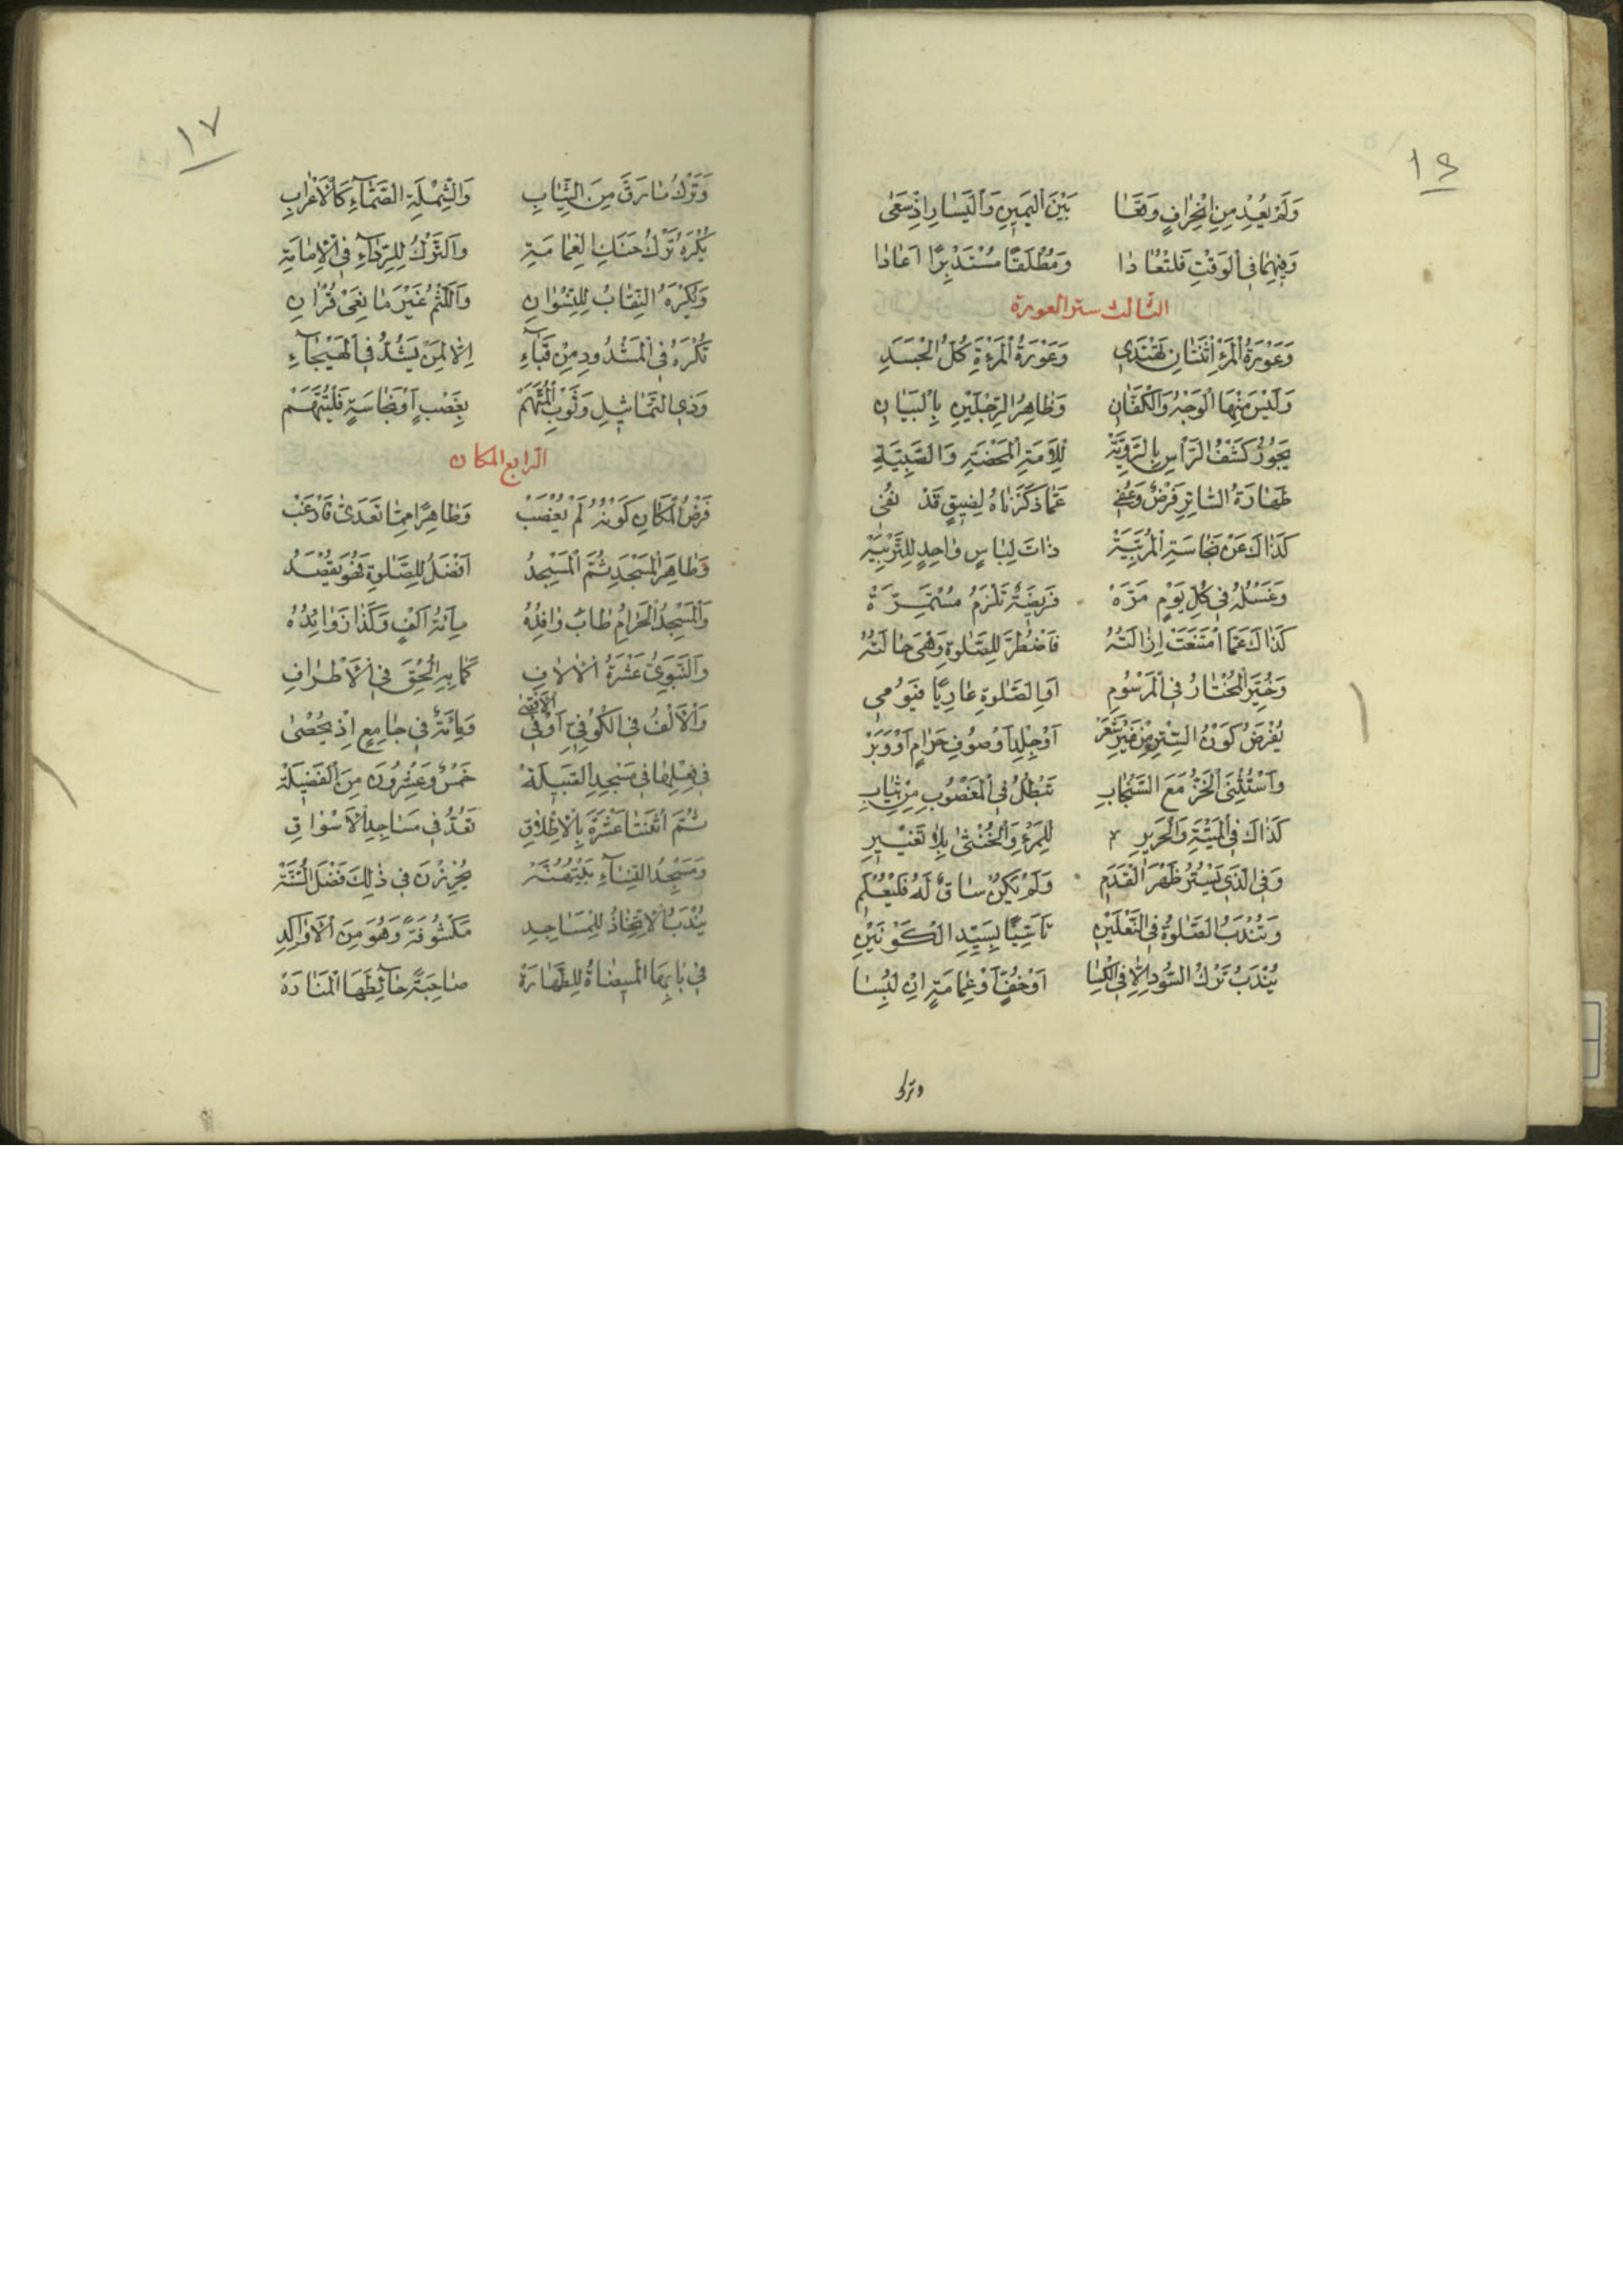 ١٤
وَلَمْ يُعِدْ مِنِ انْحِرَافٍ وَقَعَا بَيْنَ الْيَمِينِ وَالْيَسَارِ اِذْ سَعَى
وَفِيهِمَا فِي الْوَقْتِ فَلْتُعَادَا وَمُطْلَقًا مُسْتَدْبِرًا اَعَادَا
الثالث ستر العورة
وَعَوْرَةُ الْمَرْءِ اثْنَتَانِ تَهْتَدِي وَعَوْرَةُ الْمَرْءَةِ كُلُّ الْجَسَدِ
وَلَيْسَ مِنْهَا الْوَجْهُ وَالْكَفَّانِ وَظَاهِرُ الرِّجْلَيْنِ بِالْبَيَانِ
يَجُوزُ كَشْفُ الرَّأْسِ بِالرَّوِيَّةْ لِلْاَمَةِ الْمَحْضَةِ وَالصَّبِيَّةِ
طَهَارَةُ السَّاتِرِ فَرْضٌ وَعُفِي عَمَّا ذَكَرْنَاهُ لِضِيقٍ قَدْ نُفِي
كَذَاكَ عَنْ نَجَاسَةِ الْمُرَبِّيَةْ ذَاتَ لِبَاسٍ وَاحِدٍ لِلتَّرْبِيَةْ
وَغَسْلُهُ فِي كُلِّ يَوْمٍ مَرَّهْ فَرِيضَةٌ تَلْزَمُ مُسْتَمِرَّهْ
كَذَاكَ عَمَّا امْتَنَعَتْ اِزَالَتُهُ فَاضْطُرَّ لِلصَّلٰوةِ وَهْيَ حَالَتُهُ
وَخُيِّرَ الْمُخْتَارُ فِي الْمَرْسُومِ اَوِ الصَّلٰوةِ عَارِيًا فَيُومِي
يُفْرَضُ كَوْنُ السِّتْرِ مِنْ غَيْرِ شَعَرْ اَوْ جِلْدٍ اَوْ صُوفِ حَرَامٍ اَوْ وَبَرْ
وَاسْتُثْنِيَ الْخَزُّ مَعَ السِّنْجَابِ تَبْطُلُ فِي الْمَغْصُوبِ مِنْ ثِيَابِ
كَذَاكَ فِي الْمَيْتَةِ وَالْحَرِيرِ لِلْمَرْءِ وَالْخُنْثَى بِلَا تَغْيِيرِ
وَفِي الَّذِي يَسْتُرُ ظَهْرَ الْقَدَمِ وَلَمْ يَكُنْ سَاقٌ لَهُ فَلْيُعْلَمِ
وَتُنْدَبُ الصَّلٰوةُ فِي النَّعْلَيْنِ تَأَسِّيًا بِسَيِّدِ الْكَوْنَيْنِ
يُنْدَبُ تَرْكُ السُّودِ اِلَّا فِي الْكِسَا اَوْ خُفٍّ اَوْ عِمَامَةٍ اِنْ لَبِسَا
وترك
١٧
وَتَرْكُ مَا رَقَّ مِنَ الثِّيَابِ وَالشِّمْلَةِ الصَّمَّآءِ كَالْاَعْرَابِ
يُكْرَهُ تَرْكُ حَنَكِ الْعِمَامَةِ وَالتَّرْكُ لِلرِّدَآءِ فِي الْاِمَامَةِ
وَيُكْرَهُ النِّقَابُ لِلنِّسْوَانِ وَاللَّثْمُ غَيْرَ مَانِعَيْ قُرْانِ
تُكْرَهُ فِي الْمَشْدُودِ مِنْ قَبَآءِ اِلَّا لِمَنْ يَشُدُّ فِي الْهَيْجَآءِ
وَذِي التَّمَاثِيلِ وَثَوْبِ الْمُتَّهَمْ بِغَصْبٍ اَوْ نَجَاسَةٍ فَلْيُتَّهَمْ
الرابع المكان
فَرْضُ الْمَكَانِ كَوْنُهُ لَمْ يُغْصَبْ وَطَاهِرًا مِمَّا تَعَدَّى فَارْغَبْ
وَطَاهِرُ الْمَسْجَدِ ثُمَّ الْمَسْجِدُ اَفْضَلُ لِلصَّلٰوةِ فَهْوَ يُقْصَدُ
وَالْمَسْجِدُ الْحَرَامُ طَابَ وَافِدُهْ مِائَةُ اَلْفٍ وَكَذَا زَوَائِدُهْ
وَالنَّبَوِيُّ عَشْرَةُ الْاٰلَافِ كَمَا بِهِ اُلْحِقَ فِي الْاَطْرَافِ
وَالْاَلْفُ فِي الْكُوفِيِّ اَوْ فِي الْاَقْصٰى وَمِائَةٌ فِي جَامِعٍ اِذْ يُحْصٰى
فِي فِعْلِهَا فِي مَسْجِدِ الْقَبِيلَةْ خَمْسٌ وَعِشْرُونَ مِنَ الْفَضِيلَةْ
ثُمَّ اثْنَتَا عَشْرَةَ بِالْاِطْلَاقِ تُعَدُّ فِي مَسَاجِدِ الْاَسْوَاقِ
وَمَسْجِدُ النِّسَآءِ بَيْتُهُنَّهْ يُحْرِزْنَ فِي ذٰلِكَ فَضْلَ السُّنَّةْ
يُنْدَبُ الْاِتِّخَاذُ لِلْمَسَاجِدِ مَكْشُوفَةً وَهُوَ مِنَ الْاَوَاكِدِ
فِي بَابِهَا الْمِيضَاةُ لِلطَّهَارَةْ صَاحِبَةً حَآئِطَهَا الْمَنَارَةْ